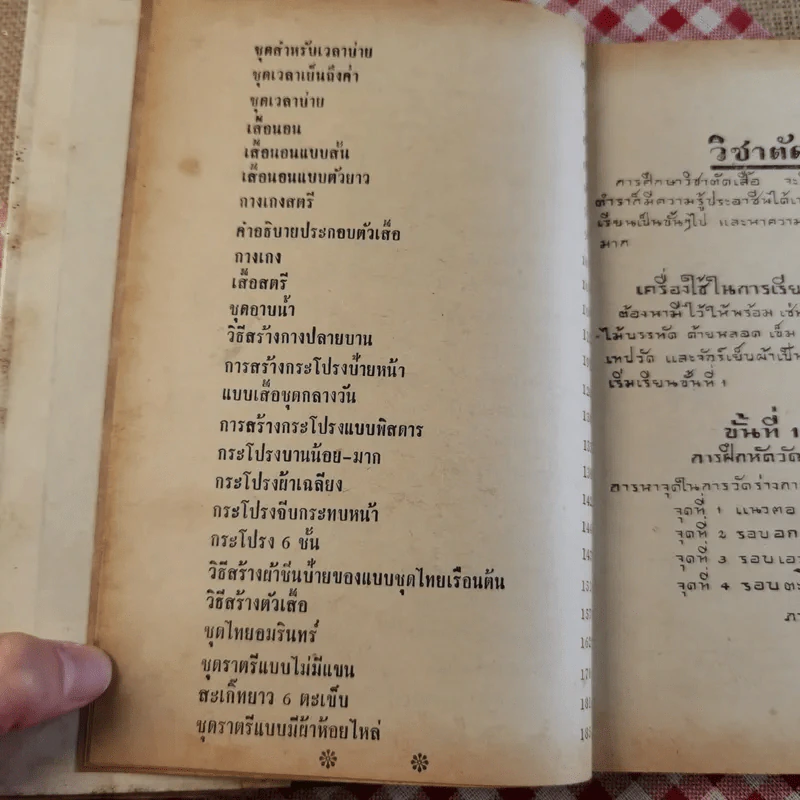 ชุดสำหรับเวลาบ่าย
ชุดเวลาเย็นถึงค่ำ
ชุดเวลาบ่าย
เสื้อนอน
เสื้อนอนแบบสั้น
เสื้อนอนแบบตัวยาว
กางเกงสตรี
คำอธิบายประกอบตัวเสื้อ
กางเกง
เสื้อสตรี
ชุดอาบน้ำ
วิธีสร้างกางปลายบาน
การสร้างกระโปรงป้ายหน้า
แบบเสื้อชุดกลางวัน
การสร้างกระโปรงแบบพิสดาร
กระโปรงบานน้อย-มาก
กระโปรงผ้าเฉลียง
กระโปรงจีบกระทบหน้า
กระโปรง 6 ชั้น
วิธีสร้างผ้าซิ่นป้ายของแบบชุดไทยเรือนต้น
วิธีสร้างตัวเสื้อ
ชุดไทยอมรินทร์
ชุดราตรีแบบไม่มีแขน
สะเก็ทยาว 6 ตะเข็บ
ชุดราตรีแบบมีผ้าห้อยไหล่
วิชาตัด
การศึกษาวิชาตัดเสื้อ จะ
ตำราก็มีความรู้ประอาชีพได้
เรียนเป็นขั้นๆไป และหาความ
มาก
เครื่องใช้ในการเรีย
ต้องหามีไว้ให้พร้อม เช่น
ไม้บรรทัด ด้ายหลอด เข็ม
เทปวัด และจักร์เย็บผ้าเป็น
เริ่มเรียนขั้นที่ 1
ขั้นที่ 1
การฝึกหัดวัด
การหาจุดในการวัดร่างกา
จุดที่ 1 แนวคอ
จุดที่ 2 รอบอก
จุดที่ 3 รอบเอว
จุดที่ 4 รอบตะโ